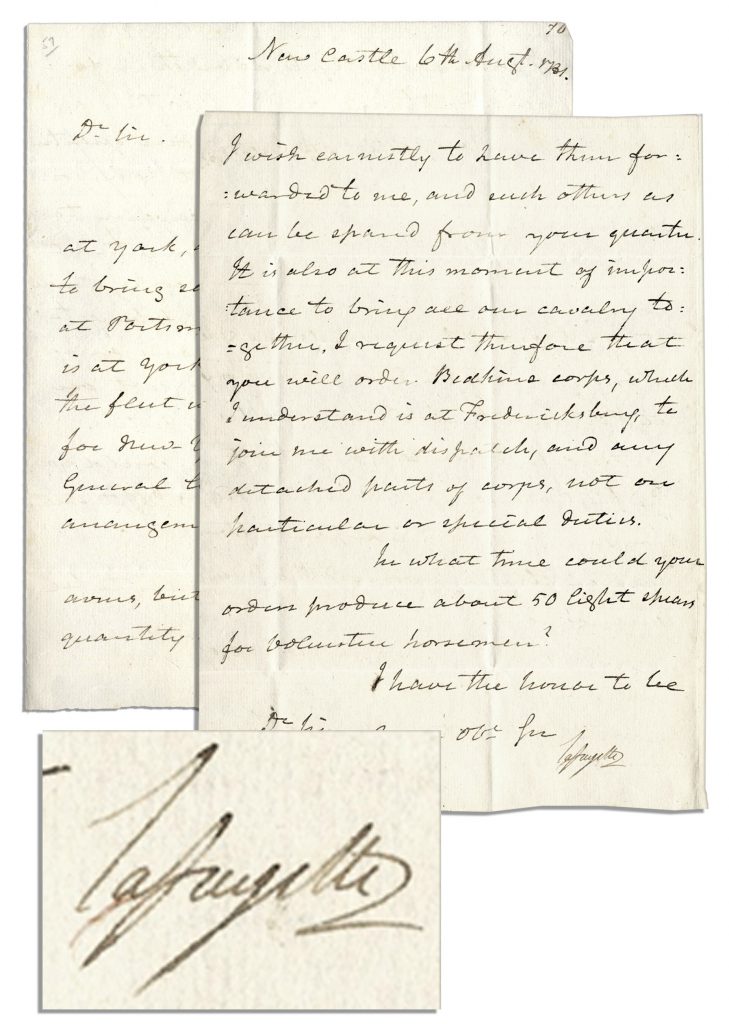 59
70
New Castle 6th Augt. 1781.
Dr Sir.
at York,
to bring
at Portsm
is at York
the fleet
for New
General
arrangem
arms, but
quantity
I wish earnestly to have them for=
=warded to me, and such others as
can be spared from your quarter.
It is also at this moment of impor=
=tance to bring all our cavalry to=
=gether, I request therefore that
you will order Bedkins corps, which
I understand is at Fredericksburg, to
join me with dispatch, and any
detached parts of corps, not on
particular or special duties.
In what time could your
orders produce about 50 light spears
for volunteer horsemen?
I have the honor to be
Dr Sir Obt Ser
Lafayette
Lafayette